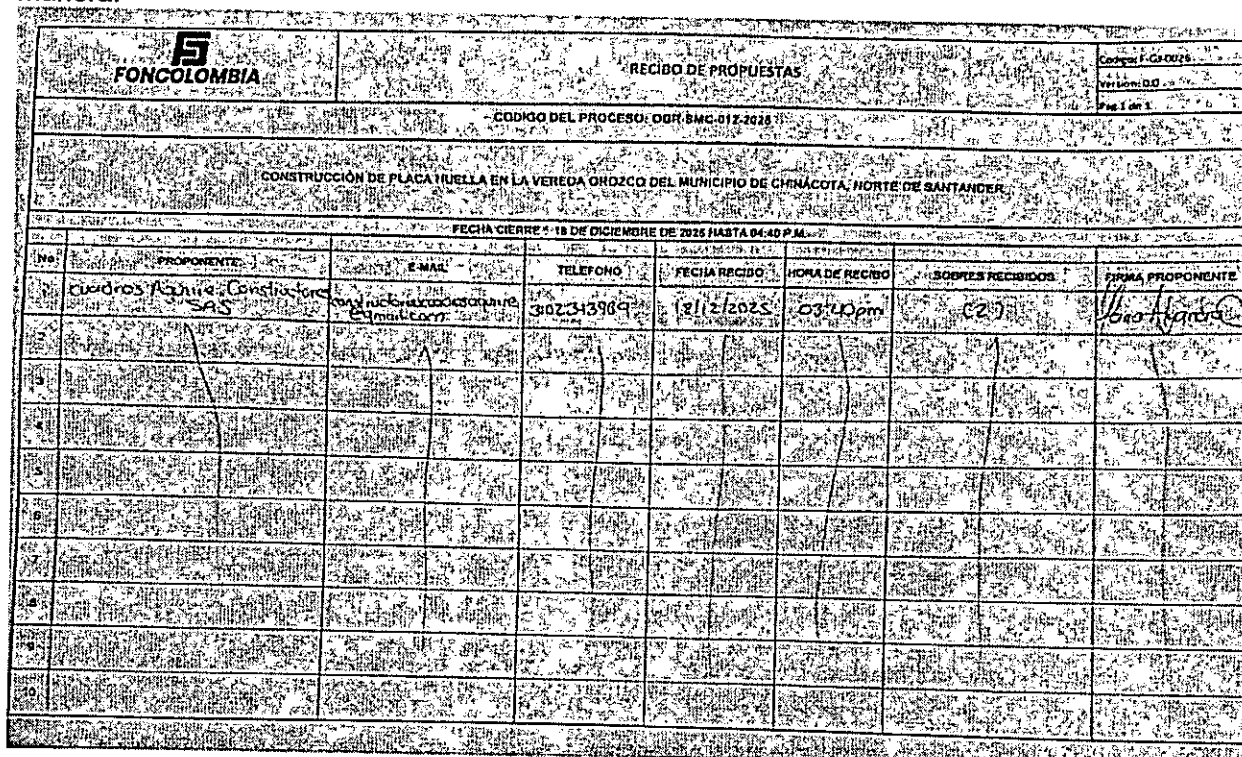 FONCOLOMBIA
RECIBO DE PROPUESTAS
Codigo: F-GJ-0026
Version: 0.0
Pag 1 de 1
CODIGO DEL PROCESO: OGR-BMC-012-2025
CONSTRUCCIÓN DE PLACA HUELLA EN LA VEREDA OROZCO DEL MUNICIPIO DE CHINÁCOTA, NORTE DE SANTANDER
FECHA CIERRE: 18 DE DICIEMBRE DE 2025 HASTA 04:40 P.M.
No PROPONENTE E-MAIL TELEFONO FECHA RECIBO HORA DE RECIBO SOBRES RECIBIDOS FIRMA PROPONENTE
Cuadros Aguirre Constructores SAS @gmail.com 18/12/2025 03:40pm (2)
3
4
5
6
7
8
9
10